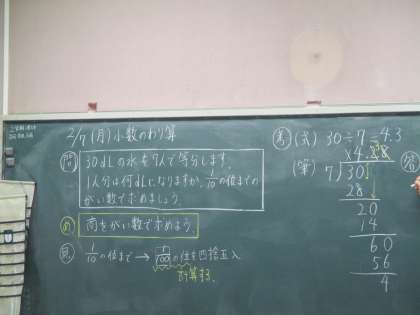 2/7(月)小数のわり算
問 30dLの水を7人で等分します。
1人分は何dLになりますか。1/10の位までの
がい数で求めましょう。
め 商をがい数で求めよう。
見 1/10の位まで → 1/100の位を四捨五入
計算する。
考 (式) 30÷7=4.3
(筆) 4.28
7)30
28
20
14
60
56
4
答